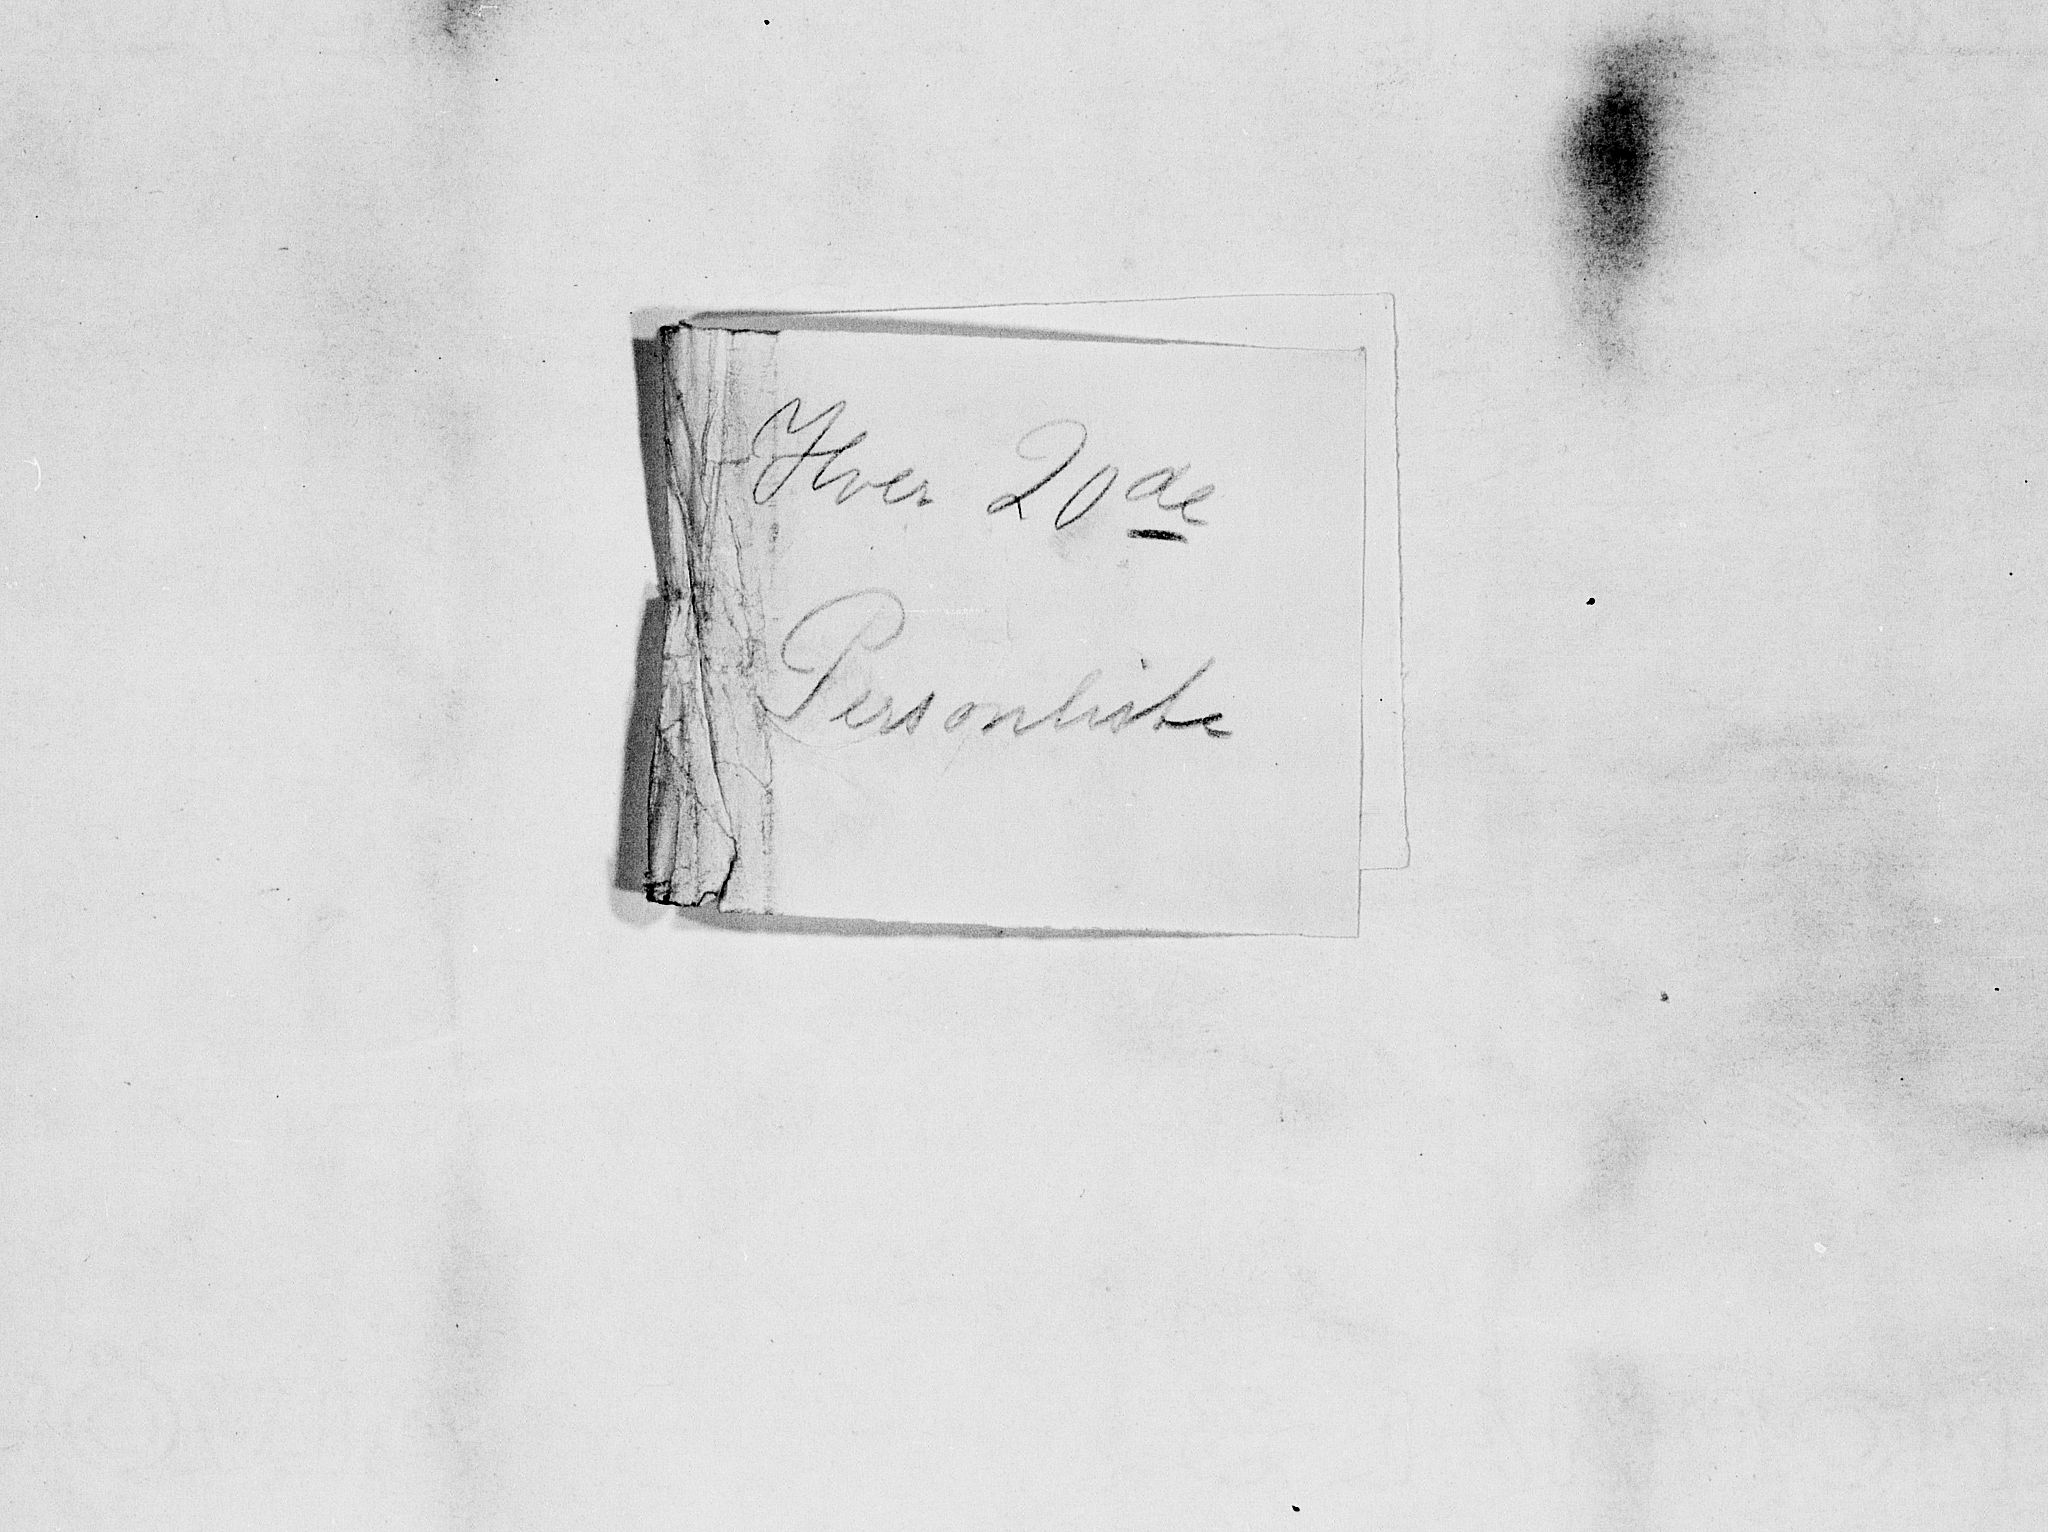 Hver 20de
Personliste